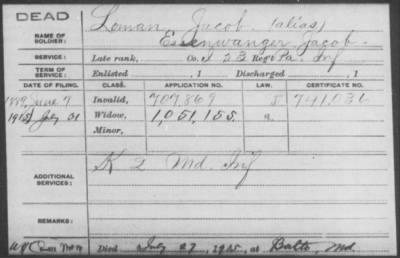 DEAD
NAME OF SOLDIER: Loman, Jacob (alias)
Eisenwanger Jacob.
SERVICE: Late rank, Co. I 23 Reg't Pa. Inf
TERM OF SERVICE: Enlisted , 1 Discharged , 1
DATE OF FILING. CLASS. APPLICATION NO. LAW. CERTIFICATE NO.
1889, June 7 Invalid, 707,869 741,036
1915 July 31 Widow, 1,051,155 a
Minor,
ADDITIONAL SERVICES: K 2 Md. Inf
REMARKS:
Died July 27, 1915, at Balto, Md.